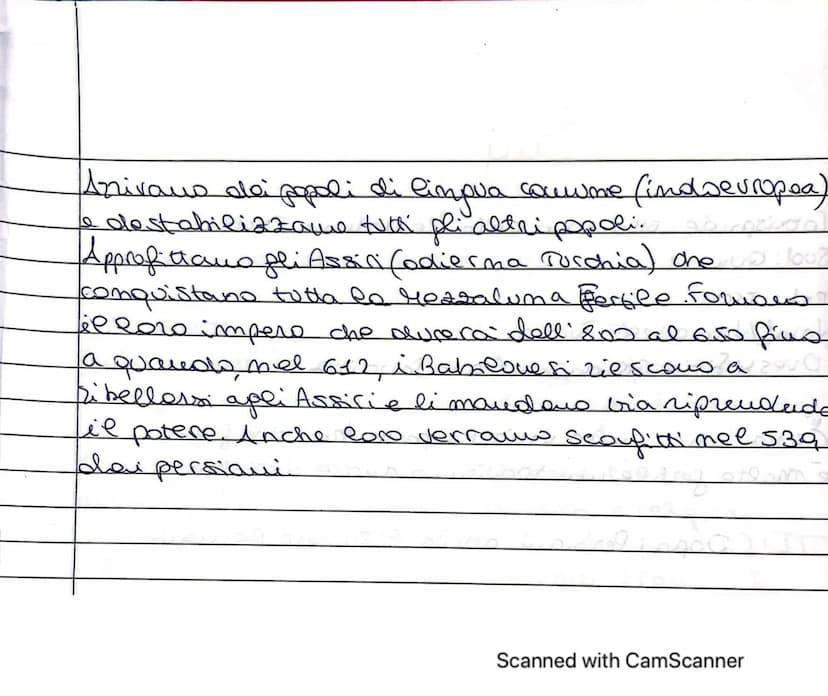 Arrivano dei popoli di lingua comune (indoeuropea)
e destabilizzano tutti gli altri popoli.
Approfittano gli Assiri (odierna Turchia) che
conquistano tutta la Mezzaluna Fertile. Formano
il loro impero che durerà dall'800 al 650 fino
a quando, nel 612, i Babilonesi riescono a
ribellarsi agli Assiri e li mandano via riprendendo
il potere. Anche loro verranno sconfitti nel 539
dai persiani.
Scanned with CamScanner